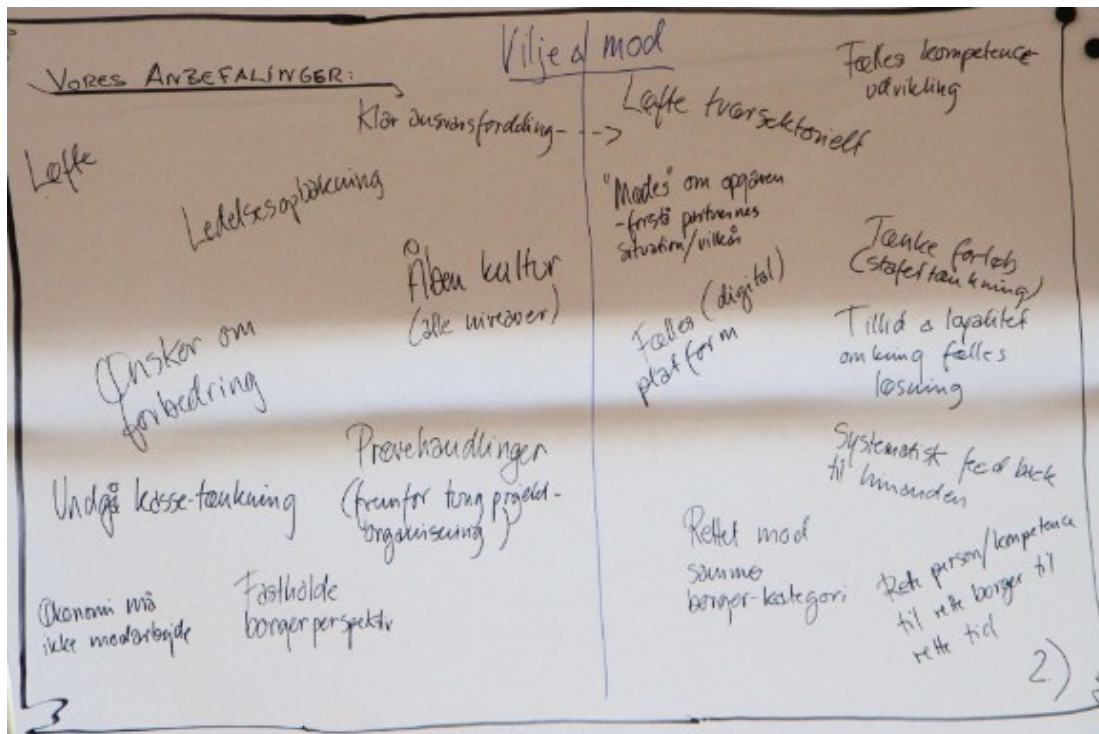 Vilje & mod
VORES ANBEFALINGER:
Klar ansvarsfordeling- - ->
Løfte
Ledelsesopbakning
Åben kultur
(alle niveauer)
Ønsker om
forbedring
Prøvehandlinger
(fremfor tung projekt-
organisering)
Undgå kasse-tænkning
Økonomi må
ikke modarbejde
Fastholde
borgerperspektiv
Fælles kompetence-
udvikling
Løfte tværsektorielt
"Mødes" om opgaven
-forstå partnernes
situation/vilkår
Tænke forløb
(stafettænkning)
Fælles (digital)
platform
Tillid & loyalitet
omkring fælles
løsning
Systematisk feedback
til hinanden
Rettet mod
samme
borger-kategori
Rette person/kompetence
til rette borger til
rette tid
2)